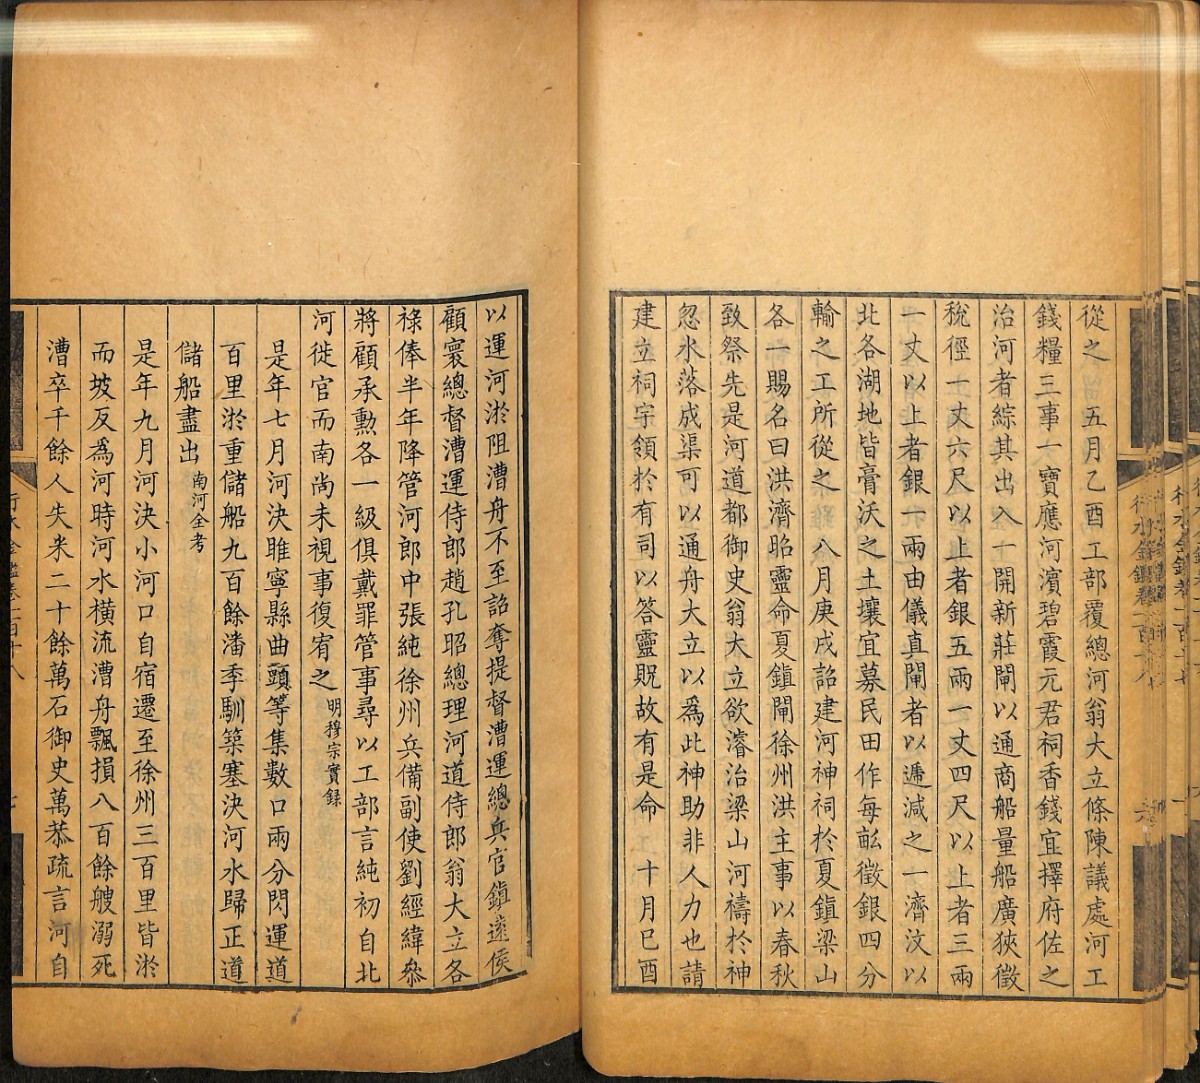 從之　五月乙酉工部覆總河翁大立條陳議處河工
錢糧三事一寶應河濱碧霞元君祠香錢宜擇府佐之
治河者綜其出入一開新莊閘以通商船量船廣狹徵
稅徑一丈六尺以上者銀五兩一丈四尺以上者三兩
一丈以上者銀一兩由儀真閘者以遞減之一濟汶以
北各湖地皆膏沃之土壤宜募民田作每畝徵銀四分
輸之工所從之　八月庚戌詔建河神祠於夏鎮梁山
各一賜名曰洪濟昭靈命夏鎮閘徐州洪主事以春秋
致祭先是河道都御史翁大立欲濬治梁山河禱於神
忽水落成渠可以通舟大立以為此神助非人力也請
建立祠宇領於有司以答靈貺故有是命　十月巳酉
以運河淤阻漕舟不至詔奪提督漕運總兵官鎮遠侯
顧寰總督漕運侍郎趙孔昭總理河道侍郎翁大立各
祿俸半年降管河郎中張純徐州兵備副使劉經緯叅
將顧承勲各一級俱戴罪管事尋以工部言純初自北
河徙官而南尚未視事復宥之明穆宗實錄
是年七月河決睢寧縣曲頭等集數口兩分閃運道
百里淤重儲船九百餘潘季馴築塞決河水歸正道
儲船盡出南河全考
是年九月河決小河口自宿遷至徐州三百里皆淤
而坡反為河時河水橫流漕舟飄損八百餘艘溺死
漕卒千餘人失米二十餘萬石御史萬恭疏言河自